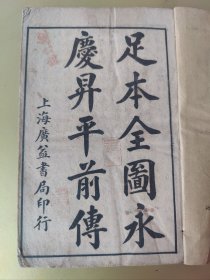 足本全圖永
慶昇平前傳
上海廣益書局印行